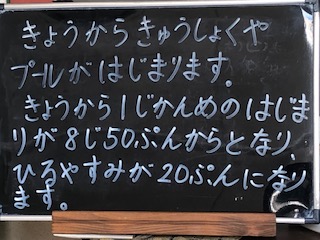 きょうからきゅうしょくや
プールがはじまります。
きょうから1じかんめのはじま
りが8じ50ぷんからとなり、
ひるやすみが20ぷんになり
ます。